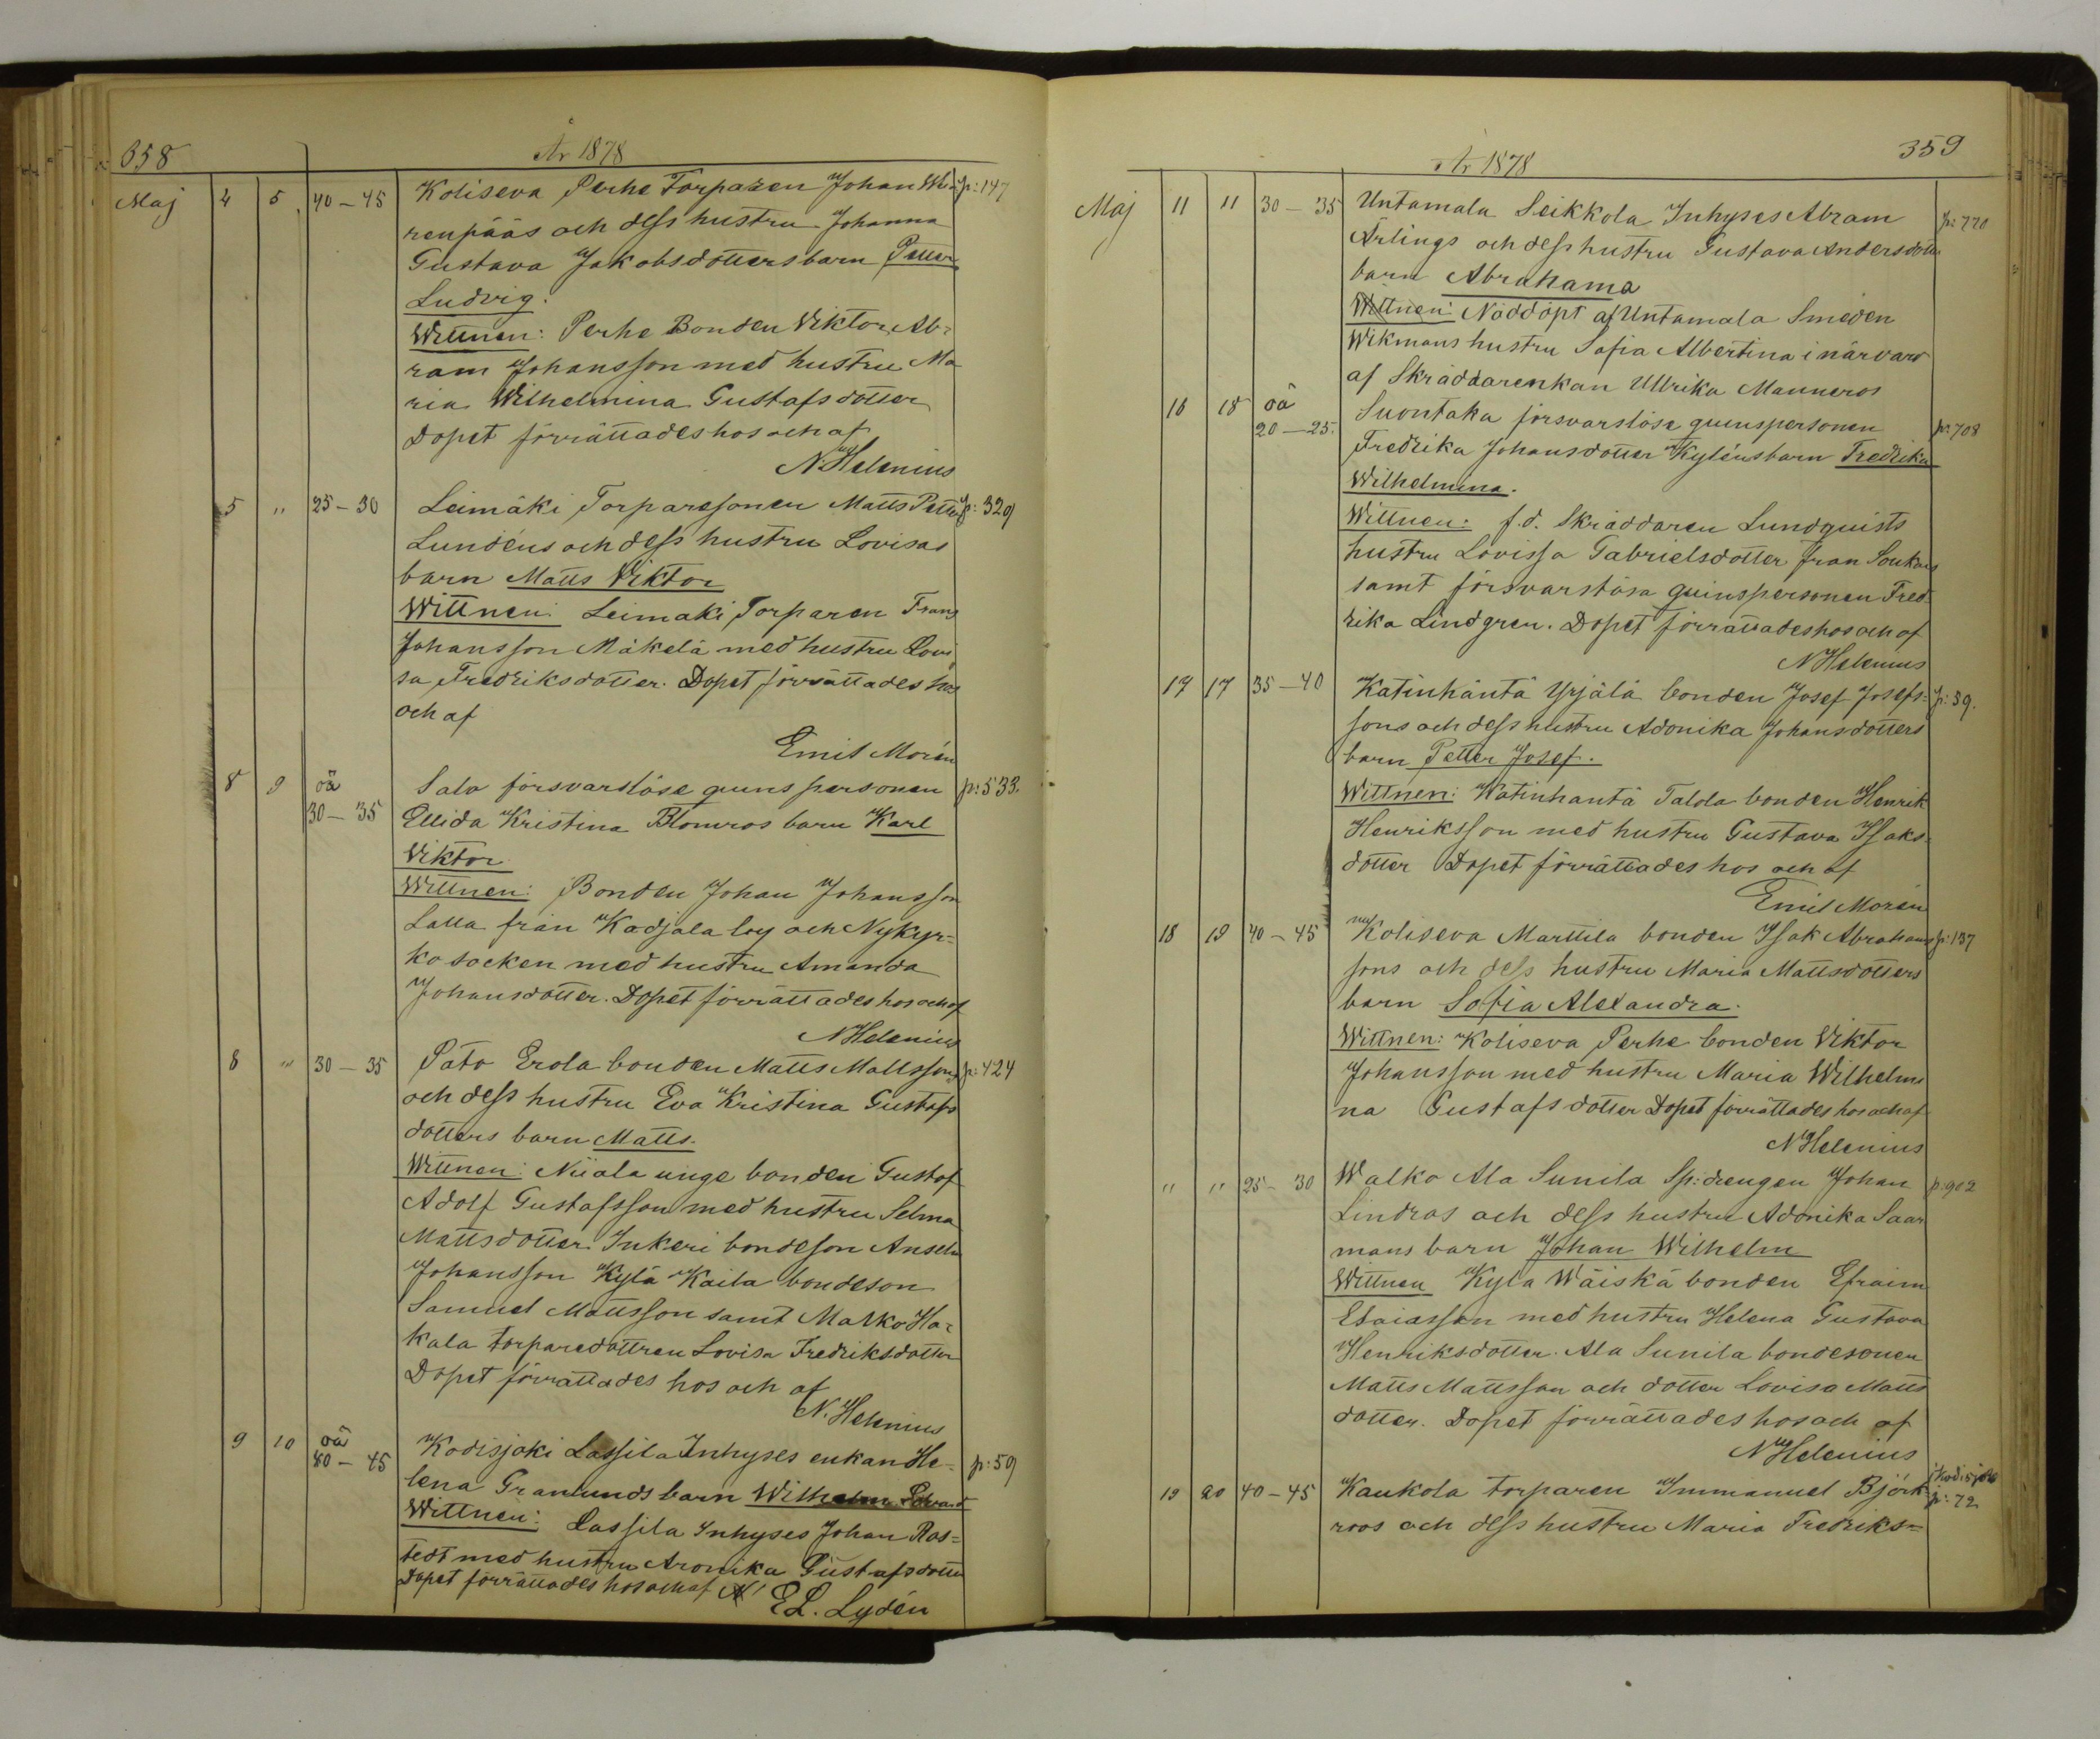 358
År 1878
Maj 4 5 40-45 Koliseva Perhe Torparen Johan Wia- p: 147
renpääs och dess hustru Johanna
Gustava Jakobsdotters barn Petter
Ludvig.
Wittnen: Perhe Bonden Viktor Ab-
ram Johansson med hustru Ma
ria Wilhelmina Gustafsdotter
Dopet förrättades hos och af
N. Helenius
5 " 25-30 Leimäki Torparesonen Matts Petter p: 329
Lundéns och dess hustru Lovisas
barn Matts Viktor
Wittnen: Leimaki Torparen Frans
Johansson Mäkelä med hustru Lovi
sa Fredriksdotter. Dopet förrättades hos
och af
Emil Morén
8 9 oä Salo försvarslöse quinspersonen p: 533.
30-35 Ellida Kristina Blomros barn Karl
Viktor
Wittnen: Bonden Johan Johansson
Lalla från Kadjala by och Nykyr-
ko socken med hustru Amanda
Johansdotter. Dopet förrättades hos och af
N Helenius
8 " 30-35 Pato Erola bonden Matts Mattssons p: 424
och dess hustru Eva Kristina Gustafs
dotters barn Matts.
Wittnen: Niiala unge bonden Gustaf
Adolf Gustafsson med hustru Selma
Mattsdotter. Inkeri bondeson Anselm
Johansson Kylä Kaila bondeson
Samuel Mattsson samt Malko Ha-
kala torparedottren Lovisa Fredriksdotter
Dopet förrättades hos och af
N. Helenius
9 10 oä Kodisjoki Lassila Inhyses enkan He- p: 59
40-45 lena Granlunds barn Wilhelm Edvard
Wittnen: Lassila Inhyses Johan Ros-
tedt med hustru Aronika Gustafsdotter
Dopet förrättades hos och af
E L. Lydén
359
År 1878
Maj 11 11 30-35 Untamala Seikkola Inhyses Abram p: 770
Ärlings och dess hustru Gustava Andersdotter
barn Abrahama
Wittnen: Nöddöpt af Untamala Smeden
Wikmans hustru Sofia Albertina i närvaro
af Skräddarenkan Ullrika Manneros
16 18 oä Suontaka försvarslösa quinspersonen p: 708
20-25. Fredrika Johansdotter Kyléns barn Fredrika
Wilhelmina.
Wittnen: f.d. Skräddaren Lundquists
hustru Lovissa Gabrielsdotter från Soukais
samt försvarslösa quinspersonen Fred-
rika Lindgren. Dopet förrättades hos och af
N Helenius
17 17 35-40 Katinhäntä Yrjälä bonden Josef Josefs- p: 39.
sons och dess hustru Adonika Johansdotters
barn Petter Josef.
Wittnen: Katinhantä Talola bonden Henrik
Henriksson med hustru Gustava Isaks-
dotter Dopet förrättades hos och af
Emil Morén
18 19 40-45 Koliseva Marttila bonden Isak Abrahams p: 137
sons och dess hustru Maria Mattsdotters
barn Sofia Alexandra.
Wittnen: Koliseva Perhe bonden Viktor
Johansson med hustru Maria Wilhelmi
na Gustafsdotter Dopet förrättades hos och af
N Helenius
" " 25-30 Walko Ala Sunila Sp: drengen Johan p: 902
Lindros och dess hustru Adonika Saar
mans barn Johan Wilhelm
Wittnen Kyla Wäiskä bonden Efraim
Esaiasson med hustru Helena Gustava
Henriksdotter. Ala Sunila bondesonen
Matts Mattsson och dotter Lovisa Matts
dotter. Dopet förrättades hos och af
N Helenius
Kodisjoki
19 20 40-45 Kaukola torparen Immanuel Björk- p: 72
roos och dess hustru Maria Fredriks-